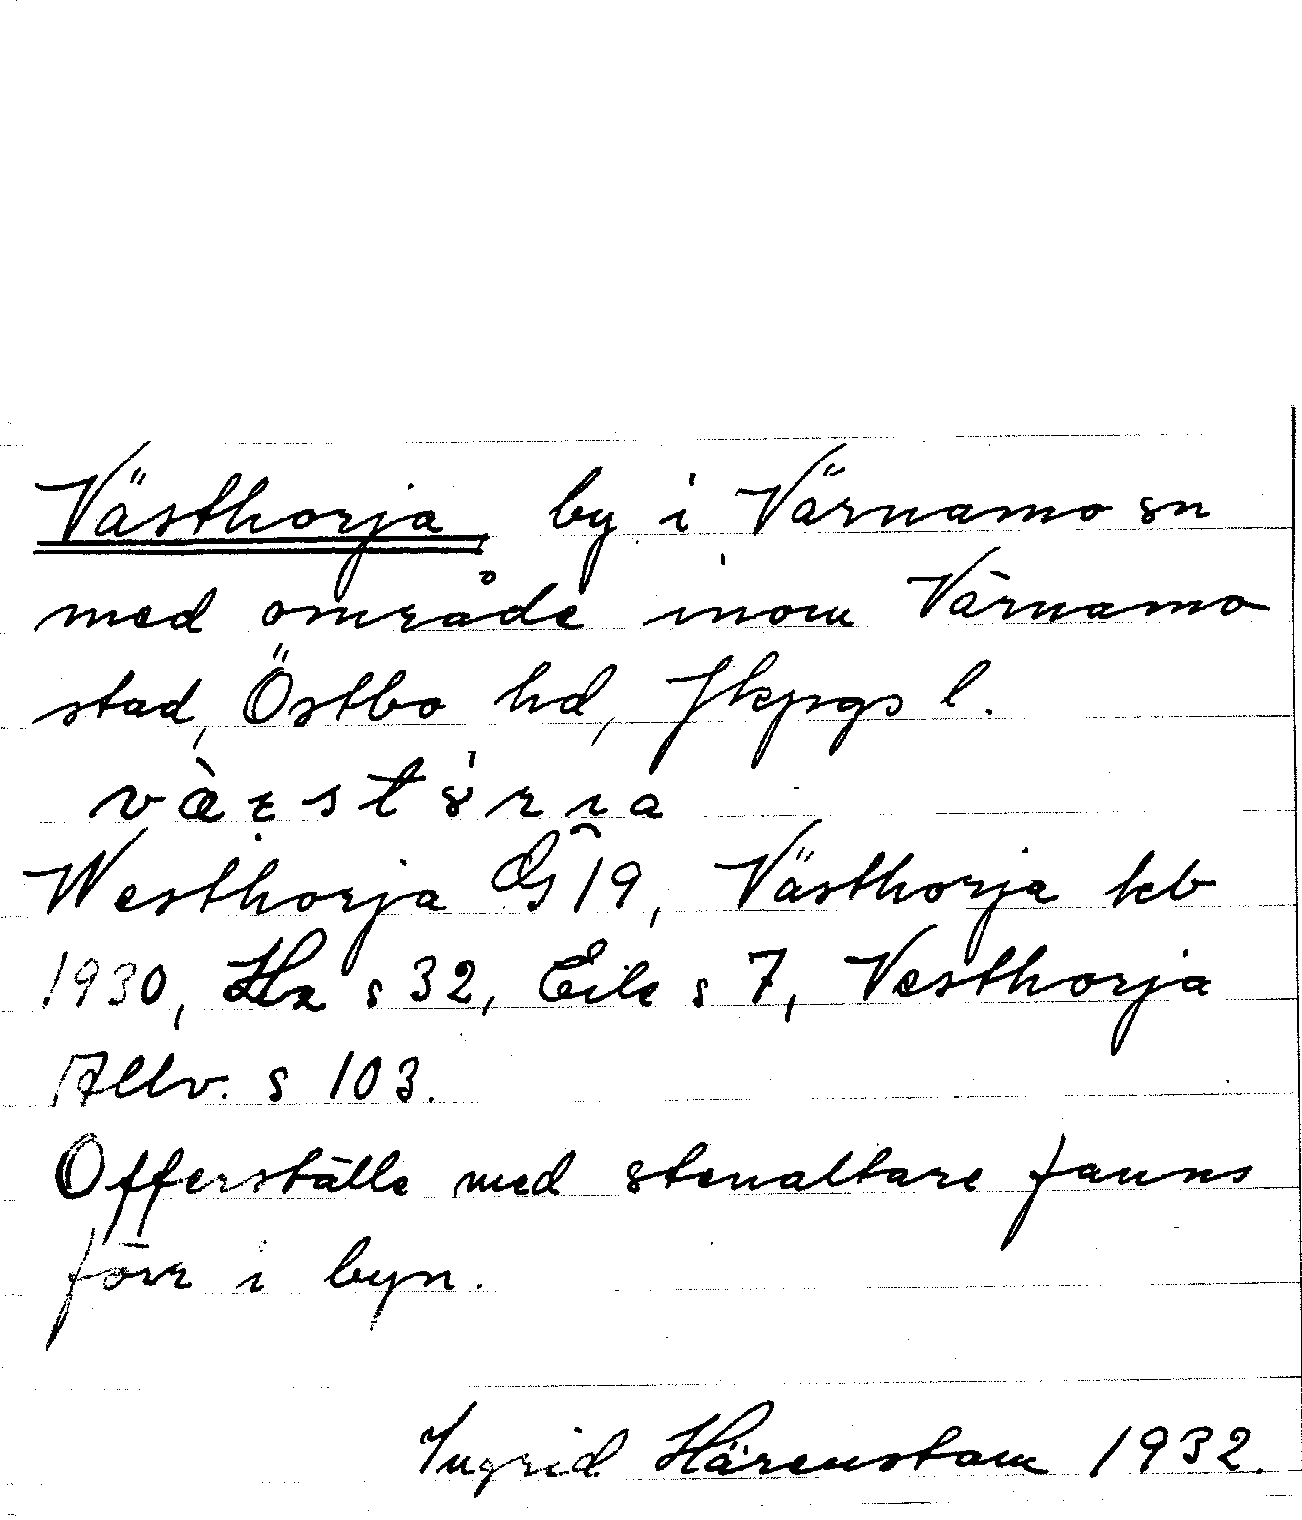 Västhorja by i Värnamo sn
med område inom Värnamo
stad, Östbo hd, Jkpgs l.
Westhorja GÖ 19, Västhorja kb
1930, Hz s 32, Eile s 7, Vesthorja
Allv. s 103.
Offerställe med stenaltare fanns
förr i byn.
Ingrid Härenstam 1932.